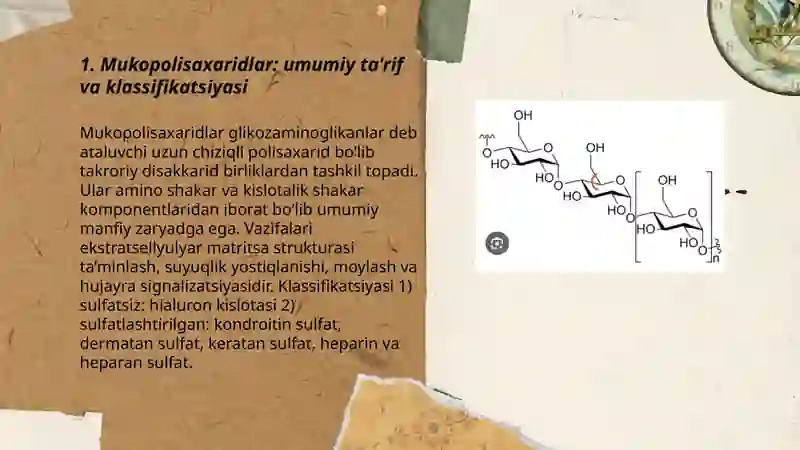 1. Mukopolisaxaridlar: umumiy ta'rif
va klassifikatsiyasi
Mukopolisaxaridlar glikozaminoglikanlar deb
ataluvchi uzun chiziqli polisaxarid bo'lib
takroriy disakkarid birliklardan tashkil topadi.
Ular amino shakar va kislotalik shakar
komponentlaridan iborat bo'lib umumiy
manfiy zaryadga ega. Vazifalari
ekstratsellyulyar matritsa strukturasi
ta'minlash, suyuqlik yostiqlanishi, moylash va
hujayra signalizatsiyasidir. Klassifikatsiyasi 1)
sulfatsiz: hialuron kislotasi 2)
sulfatlashtirilgan: kondroitin sulfat,
dermatan sulfat, keratan sulfat, heparin va
heparan sulfat.
OH
O
O
HO
HO
OH
O
O
HO
HO
OH
O
O
HO
HO
O
n